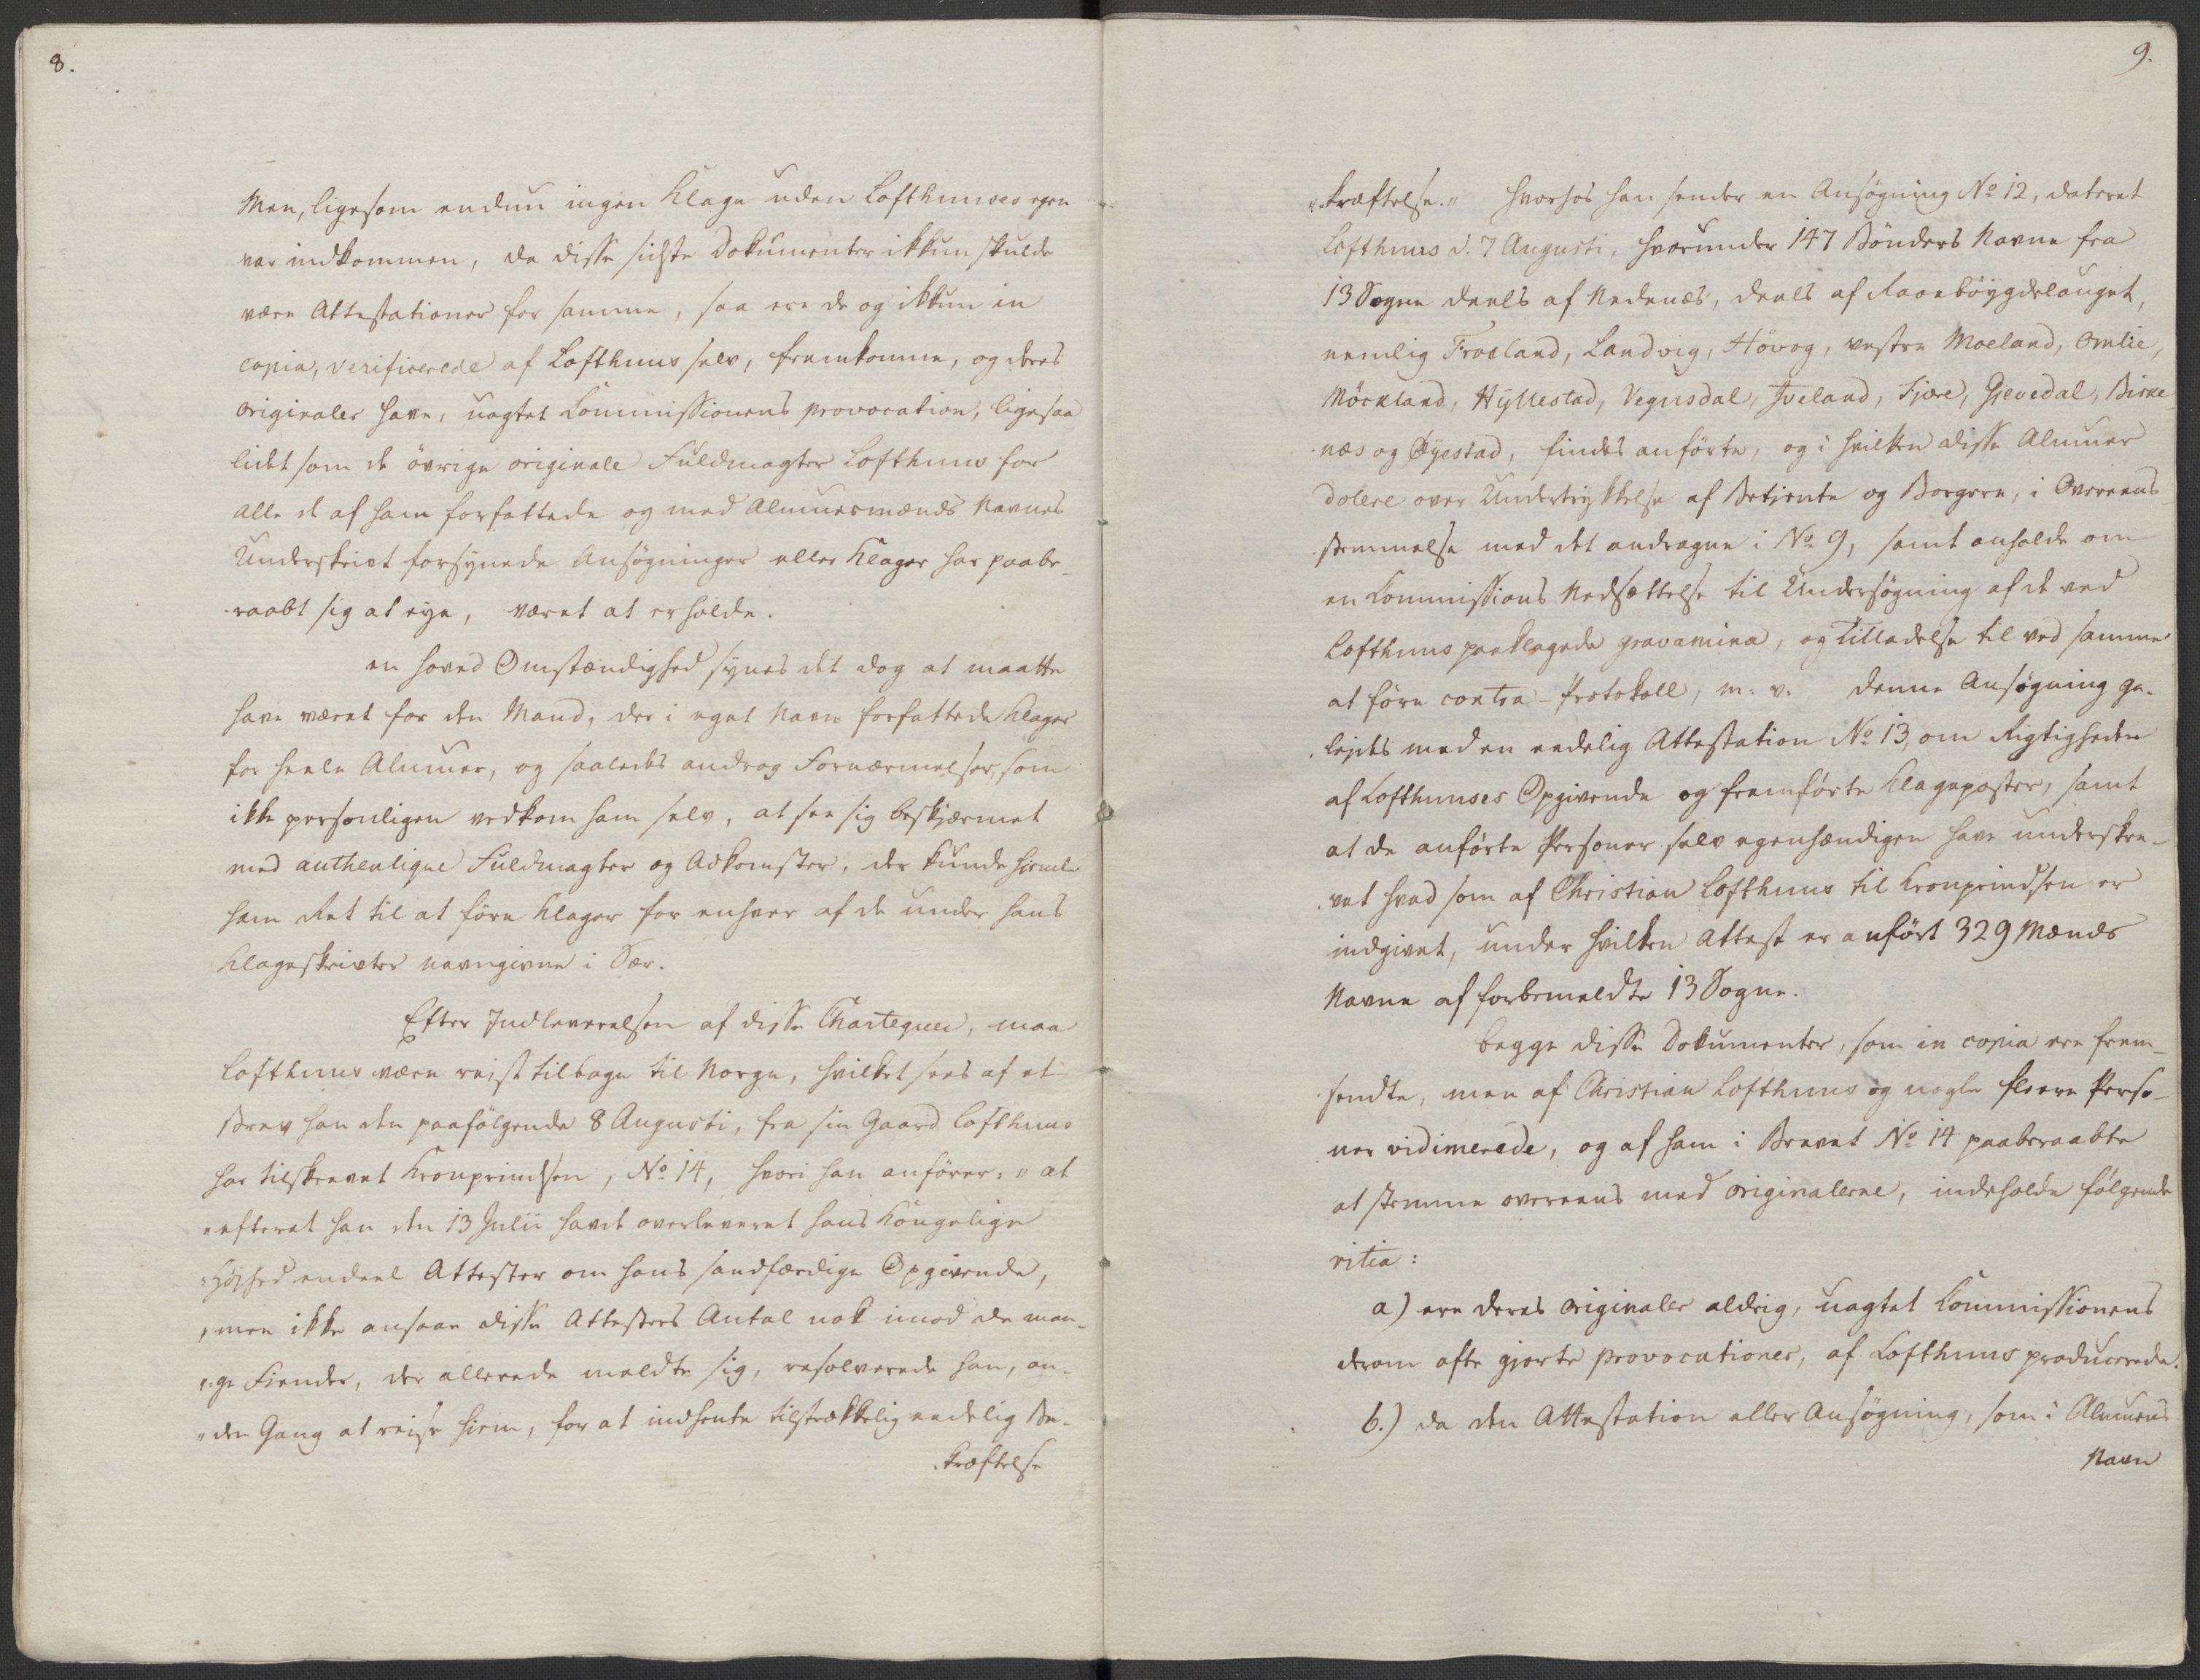 8.
Men, ligesom endnu ingen Klage uden Lofthuuses egen
var indkommen, da disse sidste Dokumenter ikkun skulde
være Attestationer for samme, saa ere de og ikkun in
copia, verificerede af Lofthuus selv, fremkomne, og deres
originaler have, uagtet Commissionens provocation, ligesaa
lidet som de övrige originale Fuldmagter Lofthuus for
alle de af ham forfattede og med Almuesmænds Navnes
Underskrivt forsynede Ansøgninger eller Klager har paabe-
raabt sig at eye, været at erholde.
en hoved Omstændighed synes det dog at maatte
have været for den Mand, der i eget Navn forfattede Klager
for heele Almuer, og saaledes androg Fornærmelser, som
ikke personligen vedkom ham selv, at see sig beskjærmet
med authentique Fuldmagter og Adkomster, der kunde hiemle
ham Ret til at före Klager for enhver af de under hans
Klageskrivter navngivne i Sær.
Efter Indleverelsen af disse Charteqver, maa
Lofthuus være reist tilbage til Norge, hvilket sees af et
Brev han den paafölgende 8 Augusti, fra sin Gaard Lofthuus
har tilskrevet Kronprindsen, No 14, hvori han anfører: "at
"efterat han den 13 Julii havde overleveret hans Kongelige
"Höjhed endeel Attester om hans sandfærdige Opgivende,
"men ikke ansaae disse Attesters Antal nok imod de man-
"ge Fiender, der allerede meldte sig, resolverede han, an-
"den Gang at reise hiem, for at indhente tilstrækkelig eedelig Be-
kræftelse
9.
"kræftelse." Hvorhos han sender en Ansøgning No 12, dateret
Lofthuus d. 7 Augusti, hvorunder 147 Bönders Navne fra
13 Sogne deels af Nedenæs, deels af Raaeböygdelauget,
nemlig Froeland, Landvig, Hövog, vestre Moeland, Omlie,
Möckland, Hyllestad, Vegusdal, Iveland, Fjære, Gjevedal, Birke
næs og Öyestad, findes anförte, og i hvilken disse Almuer
dolere over Undertrykkelse af Betjente og Borgere, i Overeens
stemmelse med det andragne i No 9, samt anholde om
en Commissions Nedsættelse til Undersögning af de ved
Lofthuus paaklagede gravamina, og Tilladelse til ved samme
at före contra-Protokoll, m. v. denne Ansøgning ge-
lejdes med en eedelig Attestation No 13, om Rigtigheden
af Lofthuuses Opgivende og fremförte Klageposter, samt
at de anförte Personer selv egenhændigen have underskre-
vet hvad som af Christian Lofthuus til Kronprindsen er
indgivet, under hvilken Attest er anfört 329 Mænds
Navne af forbemeldte 13 Sogne.
begge disse Dokumenter, som in copia ere frem-
sendte, men af Christian Lofthuus og nogle fleere Perso-
ner vidimerede, og af ham i Brevet No 14 paaberaabte
at stemme overeens med originalerne, indeholde følgende
vitia:
a) ere deres originaler aldrig, uagtet Commissionens
derom ofte gjorte provocationer, af Lofthuus producerede.
b.) da den Attestation eller Ansøgning, som i Almuens
Navn